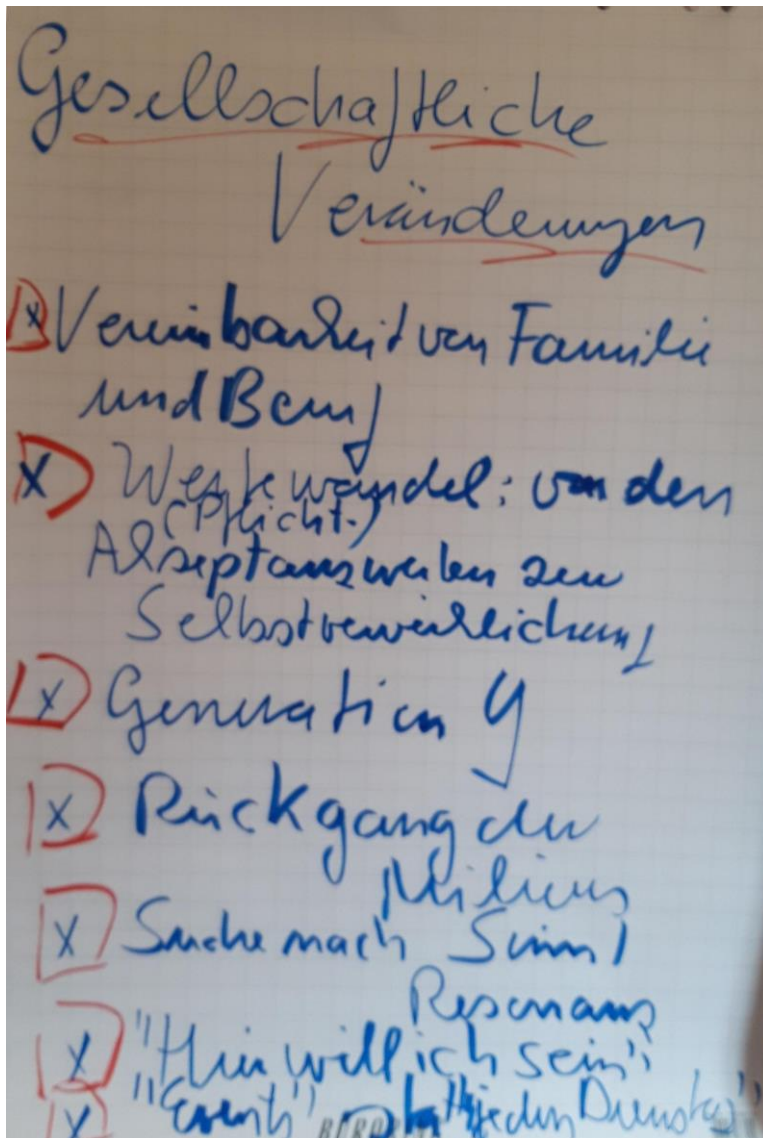 Gesellschaftliche
Veränderungen
x Vereinbarkeit von Familie
und Beruf
x Wertewandel: von den
(Pflicht-)
Akzeptanzwerten zur
Selbstverwirklichung
x Generation Y
x Rückgang der
Milieus
x Suche nach Sinn /
Resonanz
x "Hier will ich sein"
x "Event" statt "jeden Dienstag"